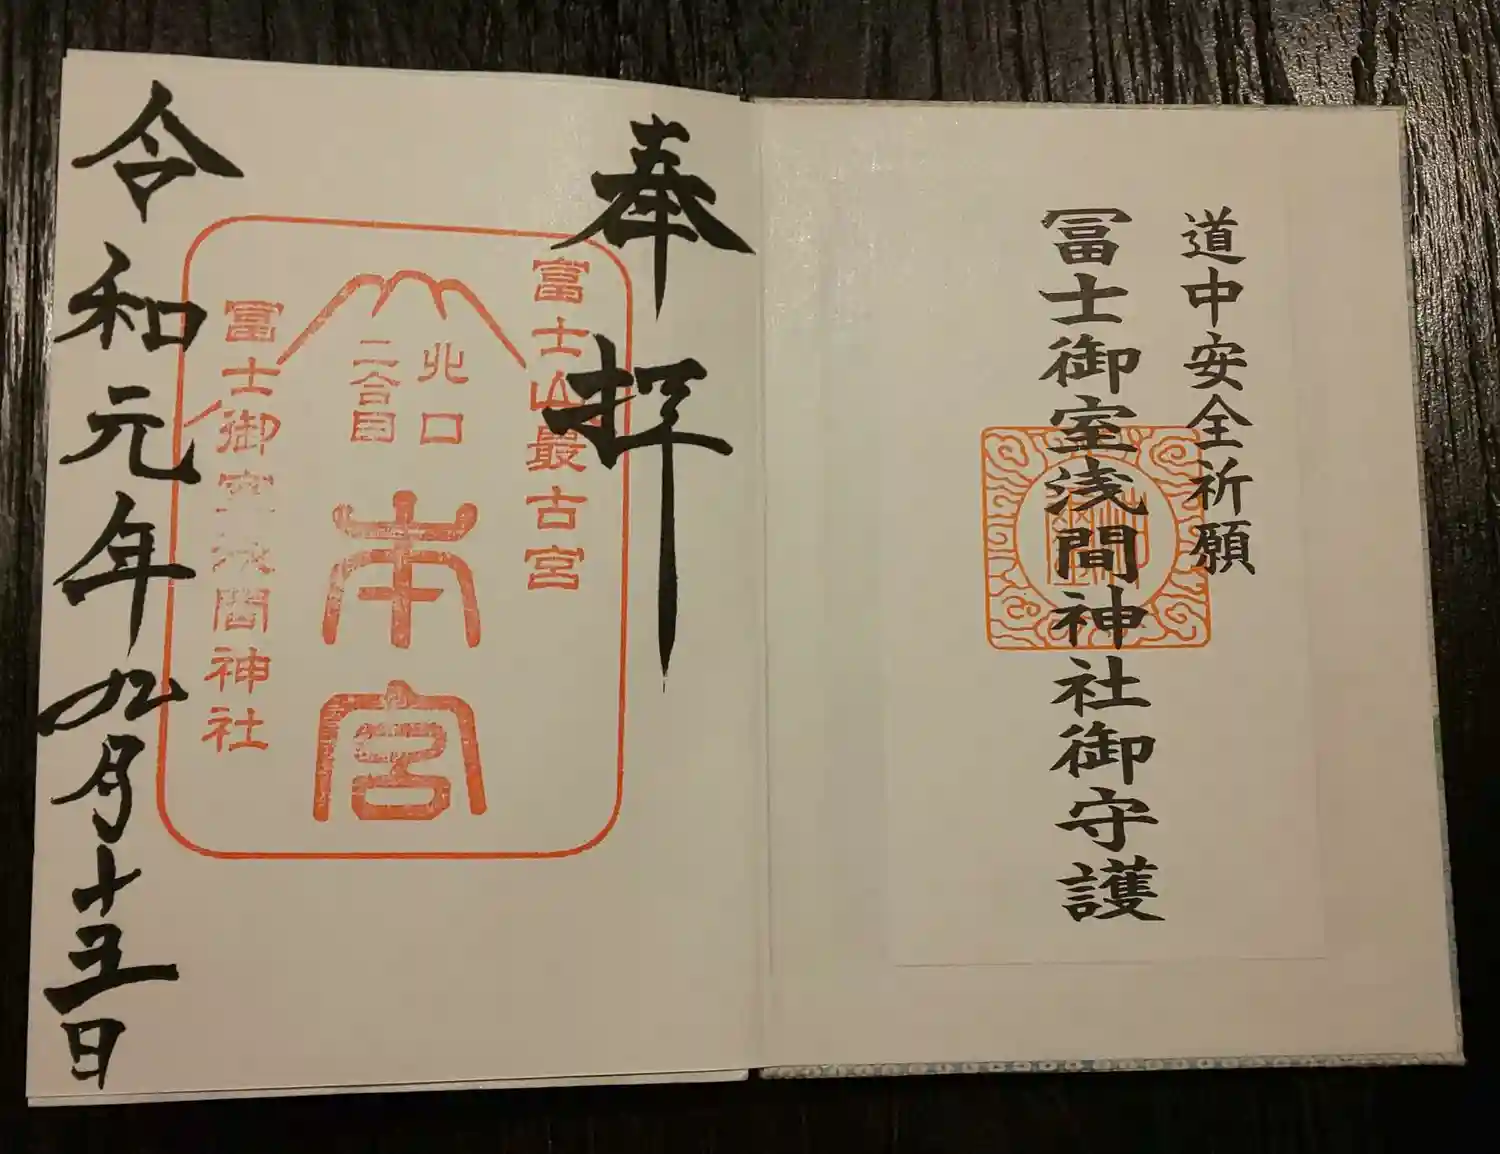 道中安全祈願
冨士御室浅間神社御守護
奉拝
富士山最古宮
北口
二合目
本宮
冨士御室浅間神社
令和元年九月十五日